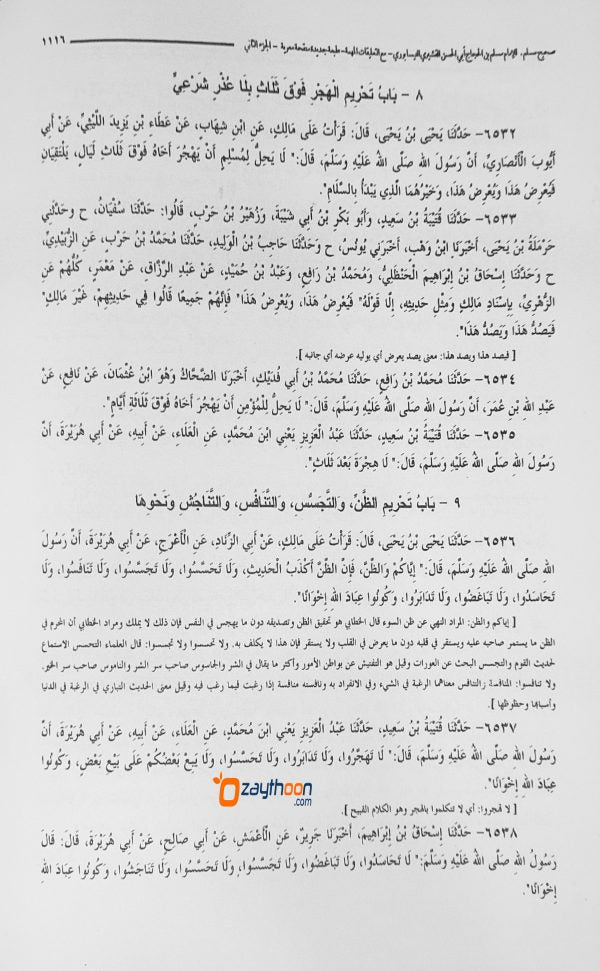 صحيح مسلم. للإمام مسلم بن الحجاج أبي الحسن القشيري النيسابوري - مع التعليقات المهمة - طبعة جديدة منقحة معربة - الجزء الثاني ١١١٦
٨ - بَابُ تَحْرِيمِ الْهَجْرِ فَوْقَ ثَلَاثٍ بِلَا عُذْرٍ شَرْعِيٍّ
٦٥٣٢- حَدَّثَنَا يَحْيَى بْنُ يَحْيَى، قَالَ: قَرَأْتُ عَلَى مَالِكٍ، عَنِ ابْنِ شِهَابٍ، عَنْ عَطَاءِ بْنِ يَزِيدَ اللَّيْثِيِّ، عَنْ أَبِي
أَيُّوبَ الْأَنْصَارِيِّ، أَنَّ رَسُولَ اللهِ صَلَّى اللهُ عَلَيْهِ وَسَلَّمَ، قَالَ:" لَا يَحِلُّ لِمُسْلِمٍ أَنْ يَهْجُرَ أَخَاهُ فَوْقَ ثَلَاثِ لَيَالٍ، يَلْتَقِيَانِ
فَيُعْرِضُ هَذَا وَيُعْرِضُ هَذَا، وَخَيْرُهُمَا الَّذِي يَبْدَأُ بِالسَّلَامِ".
٦٥٣٣- حَدَّثَنَا قُتَيْبَةُ بْنُ سَعِيدٍ، وَأَبُو بَكْرِ بْنُ أَبِي شَيْبَةَ، وَزُهَيْرُ بْنُ حَرْبٍ، قَالُوا: حَدَّثَنَا سُفْيَانُ، ح وحَدَّثَنِي
حَرْمَلَةُ بْنُ يَحْيَى، أَخْبَرَنَا ابْنُ وَهْبٍ، أَخْبَرَنِي يُونُسُ، ح وَحَدَّثَنَا حَاجِبُ بْنُ الْوَلِيدِ، حَدَّثَنَا مُحَمَّدُ بْنُ حَرْبٍ، عَنِ الزُّبَيْدِيِّ،
ح وحَدَّثَنَا إِسْحَاقُ بْنُ إِبْرَاهِيمَ الْحَنْظَلِيُّ، وَمُحَمَّدُ بْنُ رَافِعٍ، وَعَبْدُ بْنُ حُمَيْدٍ، عَنْ عَبْدِ الرَّزَّاقِ، عَنْ مَعْمَرٍ، كُلُّهُمْ عَنِ
الزُّهْرِيِّ، بِإِسْنَادِ مَالِكٍ وَمِثْلِ حَدِيثِهِ، إِلَّا قَوْلَهُ" فَيُعْرِضُ هَذَا، وَيُعْرِضُ هَذَا" فَإِنَّهُمْ جَمِيعًا قَالُوا فِي حَدِيثِهِمْ، غَيْرَ مَالِكٍ"
فَيَصُدُّ هَذَا وَيَصُدُّ هَذَا".
[ فيصد هذا ويصد هذا: معنى يصد يعرض أي يوليه عرضه أي جانبه ].
٦٥٣٤- حَدَّثَنَا مُحَمَّدُ بْنُ رَافِعٍ، حَدَّثَنَا مُحَمَّدُ بْنُ أَبِي فُدَيْكٍ، أَخْبَرَنَا الضَّحَّاكُ وَهُوَ ابْنُ عُثْمَانَ، عَنْ نَافِعٍ، عَنْ
عَبْدِ اللهِ بْنِ عُمَرَ، أَنَّ رَسُولَ اللهِ صَلَّى اللهُ عَلَيْهِ وَسَلَّمَ، قَالَ:" لَا يَحِلُّ لِلْمُؤْمِنِ أَنْ يَهْجُرَ أَخَاهُ فَوْقَ ثَلَاثَةِ أَيَّامٍ".
٦٥٣٥- حَدَّثَنَا قُتَيْبَةُ بْنُ سَعِيدٍ، حَدَّثَنَا عَبْدُ الْعَزِيزِ يَعْنِي ابْنَ مُحَمَّدٍ، عَنِ الْعَلَاءِ، عَنْ أَبِيهِ، عَنْ أَبِي هُرَيْرَةَ، أَنَّ
رَسُولَ اللهِ صَلَّى اللهُ عَلَيْهِ وَسَلَّمَ، قَالَ:" لَا هِجْرَةَ بَعْدَ ثَلَاثٍ".
٩ - بَابُ تَحْرِيمِ الظَّنِّ، وَالتَّجَسُّسِ، وَالتَّنَافُسِ، وَالتَّنَاجُشِ وَنَحْوِهَا
٦٥٣٦- حَدَّثَنَا يَحْيَى بْنُ يَحْيَى، قَالَ: قَرَأْتُ عَلَى مَالِكٍ، عَنْ أَبِي الزِّنَادِ، عَنِ الْأَعْرَجِ، عَنْ أَبِي هُرَيْرَةَ، أَنَّ رَسُولَ
اللهِ صَلَّى اللهُ عَلَيْهِ وَسَلَّمَ، قَالَ:" إِيَّاكُمْ وَالظَّنَّ، فَإِنَّ الظَّنَّ أَكْذَبُ الْحَدِيثِ، وَلَا تَحَسَّسُوا، وَلَا تَجَسَّسُوا، وَلَا تَنَافَسُوا، وَلَا
تَحَاسَدُوا، وَلَا تَبَاغَضُوا، وَلَا تَدَابَرُوا، وَكُونُوا عِبَادَ اللهِ إِخْوَانًا".
[ إياكم والظن: المراد النهي عن ظن السوء قال الخطابي هو تحقيق الظن وتصديقه دون ما يهجس في النفس فإن ذلك لا يملك ومراد الخطابي أن المحرم في
الظن ما يستمر صاحبه عليه ويستقر في قلبه دون ما يعرض في القلب ولا يستقر فإن هذا لا يكلف به. ولا تحسسوا ولا تجسسوا: قال العلماء التحسس الاستماع
لحديث القوم والتجسس البحث عن العورات وقيل هو التفتيش عن بواطن الأمور وأكثر ما يقال في الشر والجاسوس صاحب سر الشر والناموس صاحب سر الخير.
ولا تنافسوا: المنافسة والتنافس معناهما الرغبة في الشيء وفي الانفراد به ونافسته منافسة إذا رغبت فيما رغب فيه وقيل معنى الحديث التباري في الرغبة في الدنيا
وأسبابها وحظوظها ].
٦٥٣٧- حَدَّثَنَا قُتَيْبَةُ بْنُ سَعِيدٍ، حَدَّثَنَا عَبْدُ الْعَزِيزِ يَعْنِي ابْنَ مُحَمَّدٍ، عَنِ الْعَلَاءِ، عَنْ أَبِيهِ، عَنْ أَبِي هُرَيْرَةَ، أَنَّ
رَسُولَ اللهِ صَلَّى اللهُ عَلَيْهِ وَسَلَّمَ، قَالَ:" لَا تَهَجَّرُوا، وَلَا تَدَابَرُوا، وَلَا تَحَسَّسُوا، وَلَا يَبِعْ بَعْضُكُمْ عَلَى بَيْعِ بَعْضٍ، وَكُونُوا
عِبَادَ اللهِ إِخْوَانًا".
Ozaythoon
.com
[ لا تهجروا: أي لا تتكلموا بالهجر وهو الكلام القبيح ]
٦٥٣٨- حَدَّثَنَا إِسْحَاقُ بْنُ إِبْرَاهِيمَ، أَخْبَرَنَا جَرِيرٌ، عَنِ الْأَعْمَشِ، عَنْ أَبِي صَالِحٍ، عَنْ أَبِي هُرَيْرَةَ، قَالَ: قَالَ
رَسُولُ اللهِ صَلَّى اللهُ عَلَيْهِ وَسَلَّمَ:" لَا تَحَاسَدُوا، وَلَا تَبَاغَضُوا، وَلَا تَجَسَّسُوا، وَلَا تَحَسَّسُوا، وَلَا تَنَاجَشُوا، وَكُونُوا عِبَادَ اللهِ
إِخْوَانًا".